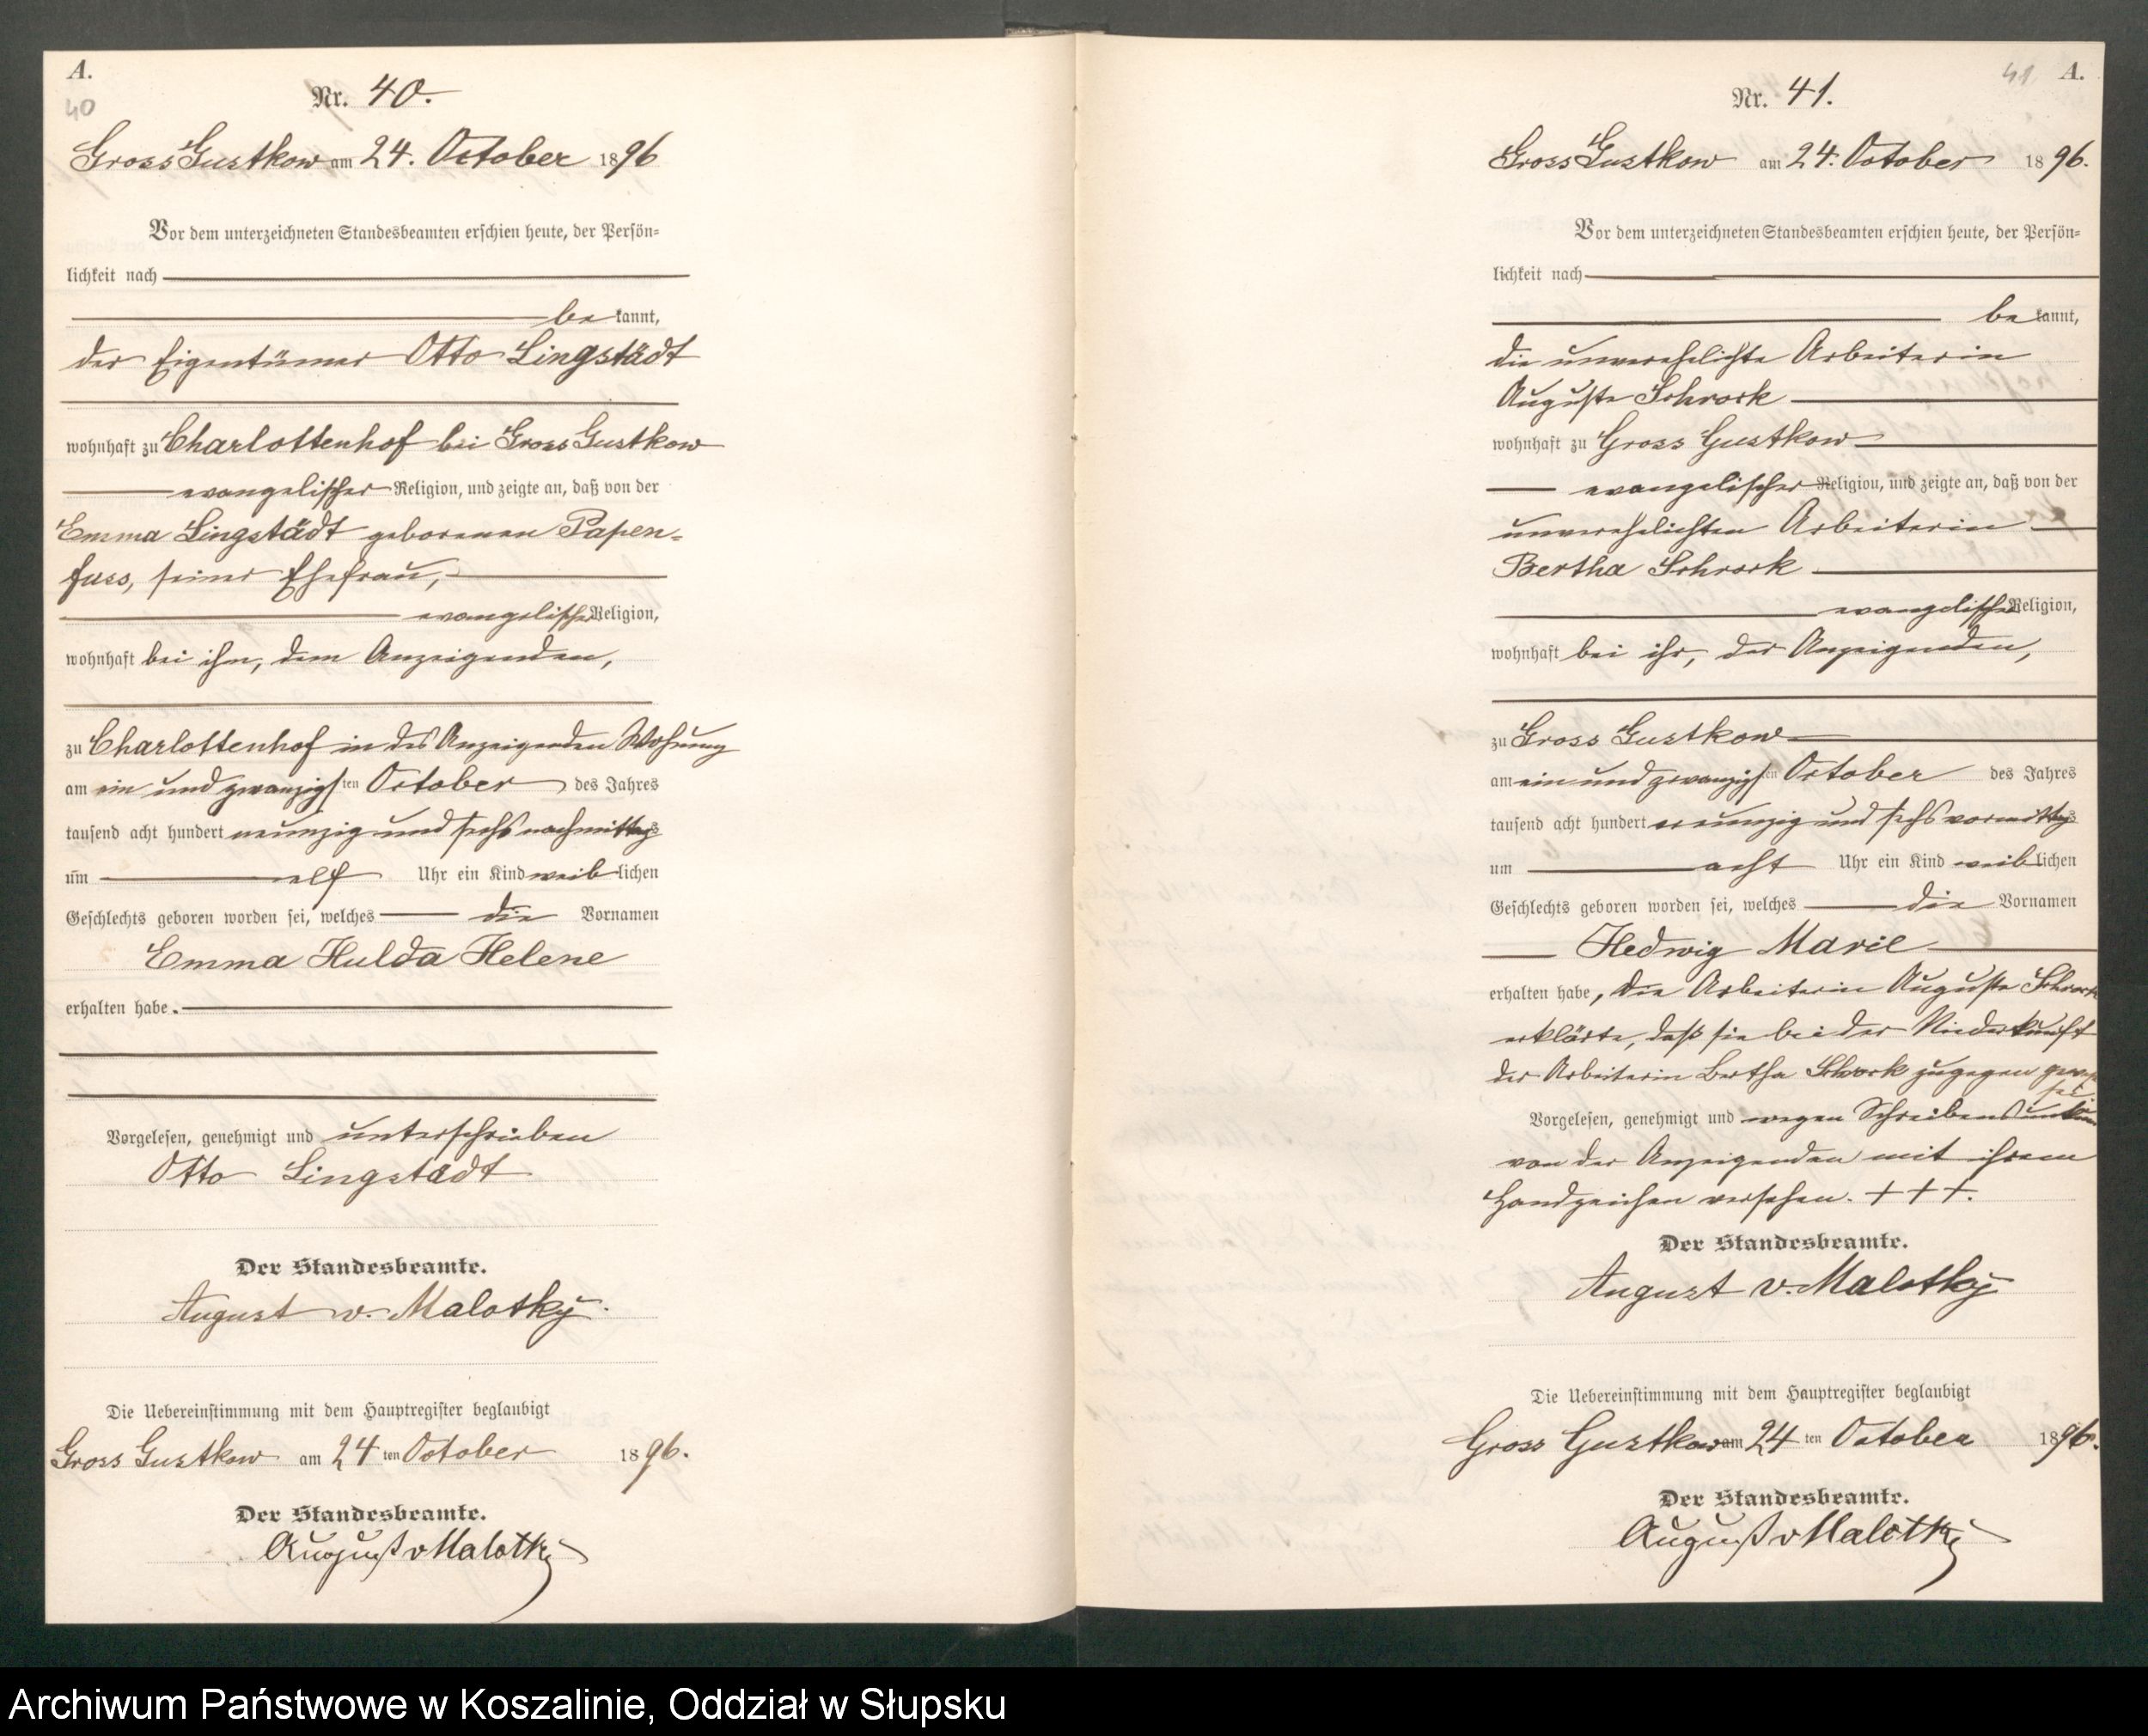 A.
40
Nr. 40.
Gross Gustkow am 24. October 1896
Vor dem unterzeichneten Standesbeamten erschien heute, der Persön-
lichkeit nach
be kannt,
der Eigentümer Otto Lingstädt
wohnhaft zu Charlottenhof bei Gross Gustkow
evangelischer Religion, und zeigte an, daß von der
Emma Lingstädt geborenen Papen-
fuss, seiner Ehefrau,
evangelischer Religion,
wohnhaft bei ihm, dem Anzeigenden,
zu Charlottenhof in des Anzeigenden Wohnung
am ein und zwanzigsten October des Jahres
tausend acht hundert neunzig und sechs nachmittags
um elf Uhr ein Kind weiblichen
Geschlechts geboren worden sei, welches die Vornamen
Emma Hulda Helene
erhalten habe.
Vorgelesen, genehmigt und unterschrieben
Otto Lingstädt
Der Standesbeamte.
August v. Malotky.
Die Uebereinstimmung mit dem Hauptregister beglaubigt
Gross Gustkow am 24 ten October 1896.
Der Standesbeamte.
August v Malotky
41 A.
Nr. 41.
Gross Gustkow am 24. October 1896.
Vor dem unterzeichneten Standesbeamten erschien heute, der Persön-
lichkeit nach
be kannt,
die unverehelichte Arbeiterin
Auguste Schrock
wohnhaft zu Gross Gustkow
evangelischer Religion, und zeigte an, daß von der
unverehelichten Arbeiterin
Bertha Schrock
evangelischer Religion,
wohnhaft bei ihr, der Anzeigenden,
zu Gross Gustkow
am ein und zwanzigsten October des Jahres
tausend acht hundert neunzig und sechs vormittags
um acht Uhr ein Kind weiblichen
Geschlechts geboren worden sei, welches die Vornamen
Hedwig Marie
erhalten habe, die Arbeiterin Auguste Schrock
erklärte, daß sie bei der Niederkunft
der Arbeiterin Bertha Schrock zugegen
sei.
Vorgelesen, genehmigt und wegen Schreibens
von der Anzeigenden mit ihrem
Handzeichen versehen. + + +.
Der Standesbeamte.
August v. Malotky
Die Uebereinstimmung mit dem Hauptregister beglaubigt
Gross Gustkow am 24 ten October 1896.
Der Standesbeamte.
August v Malotky
Archiwum Państwowe w Koszalinie, Oddział w Słupsku